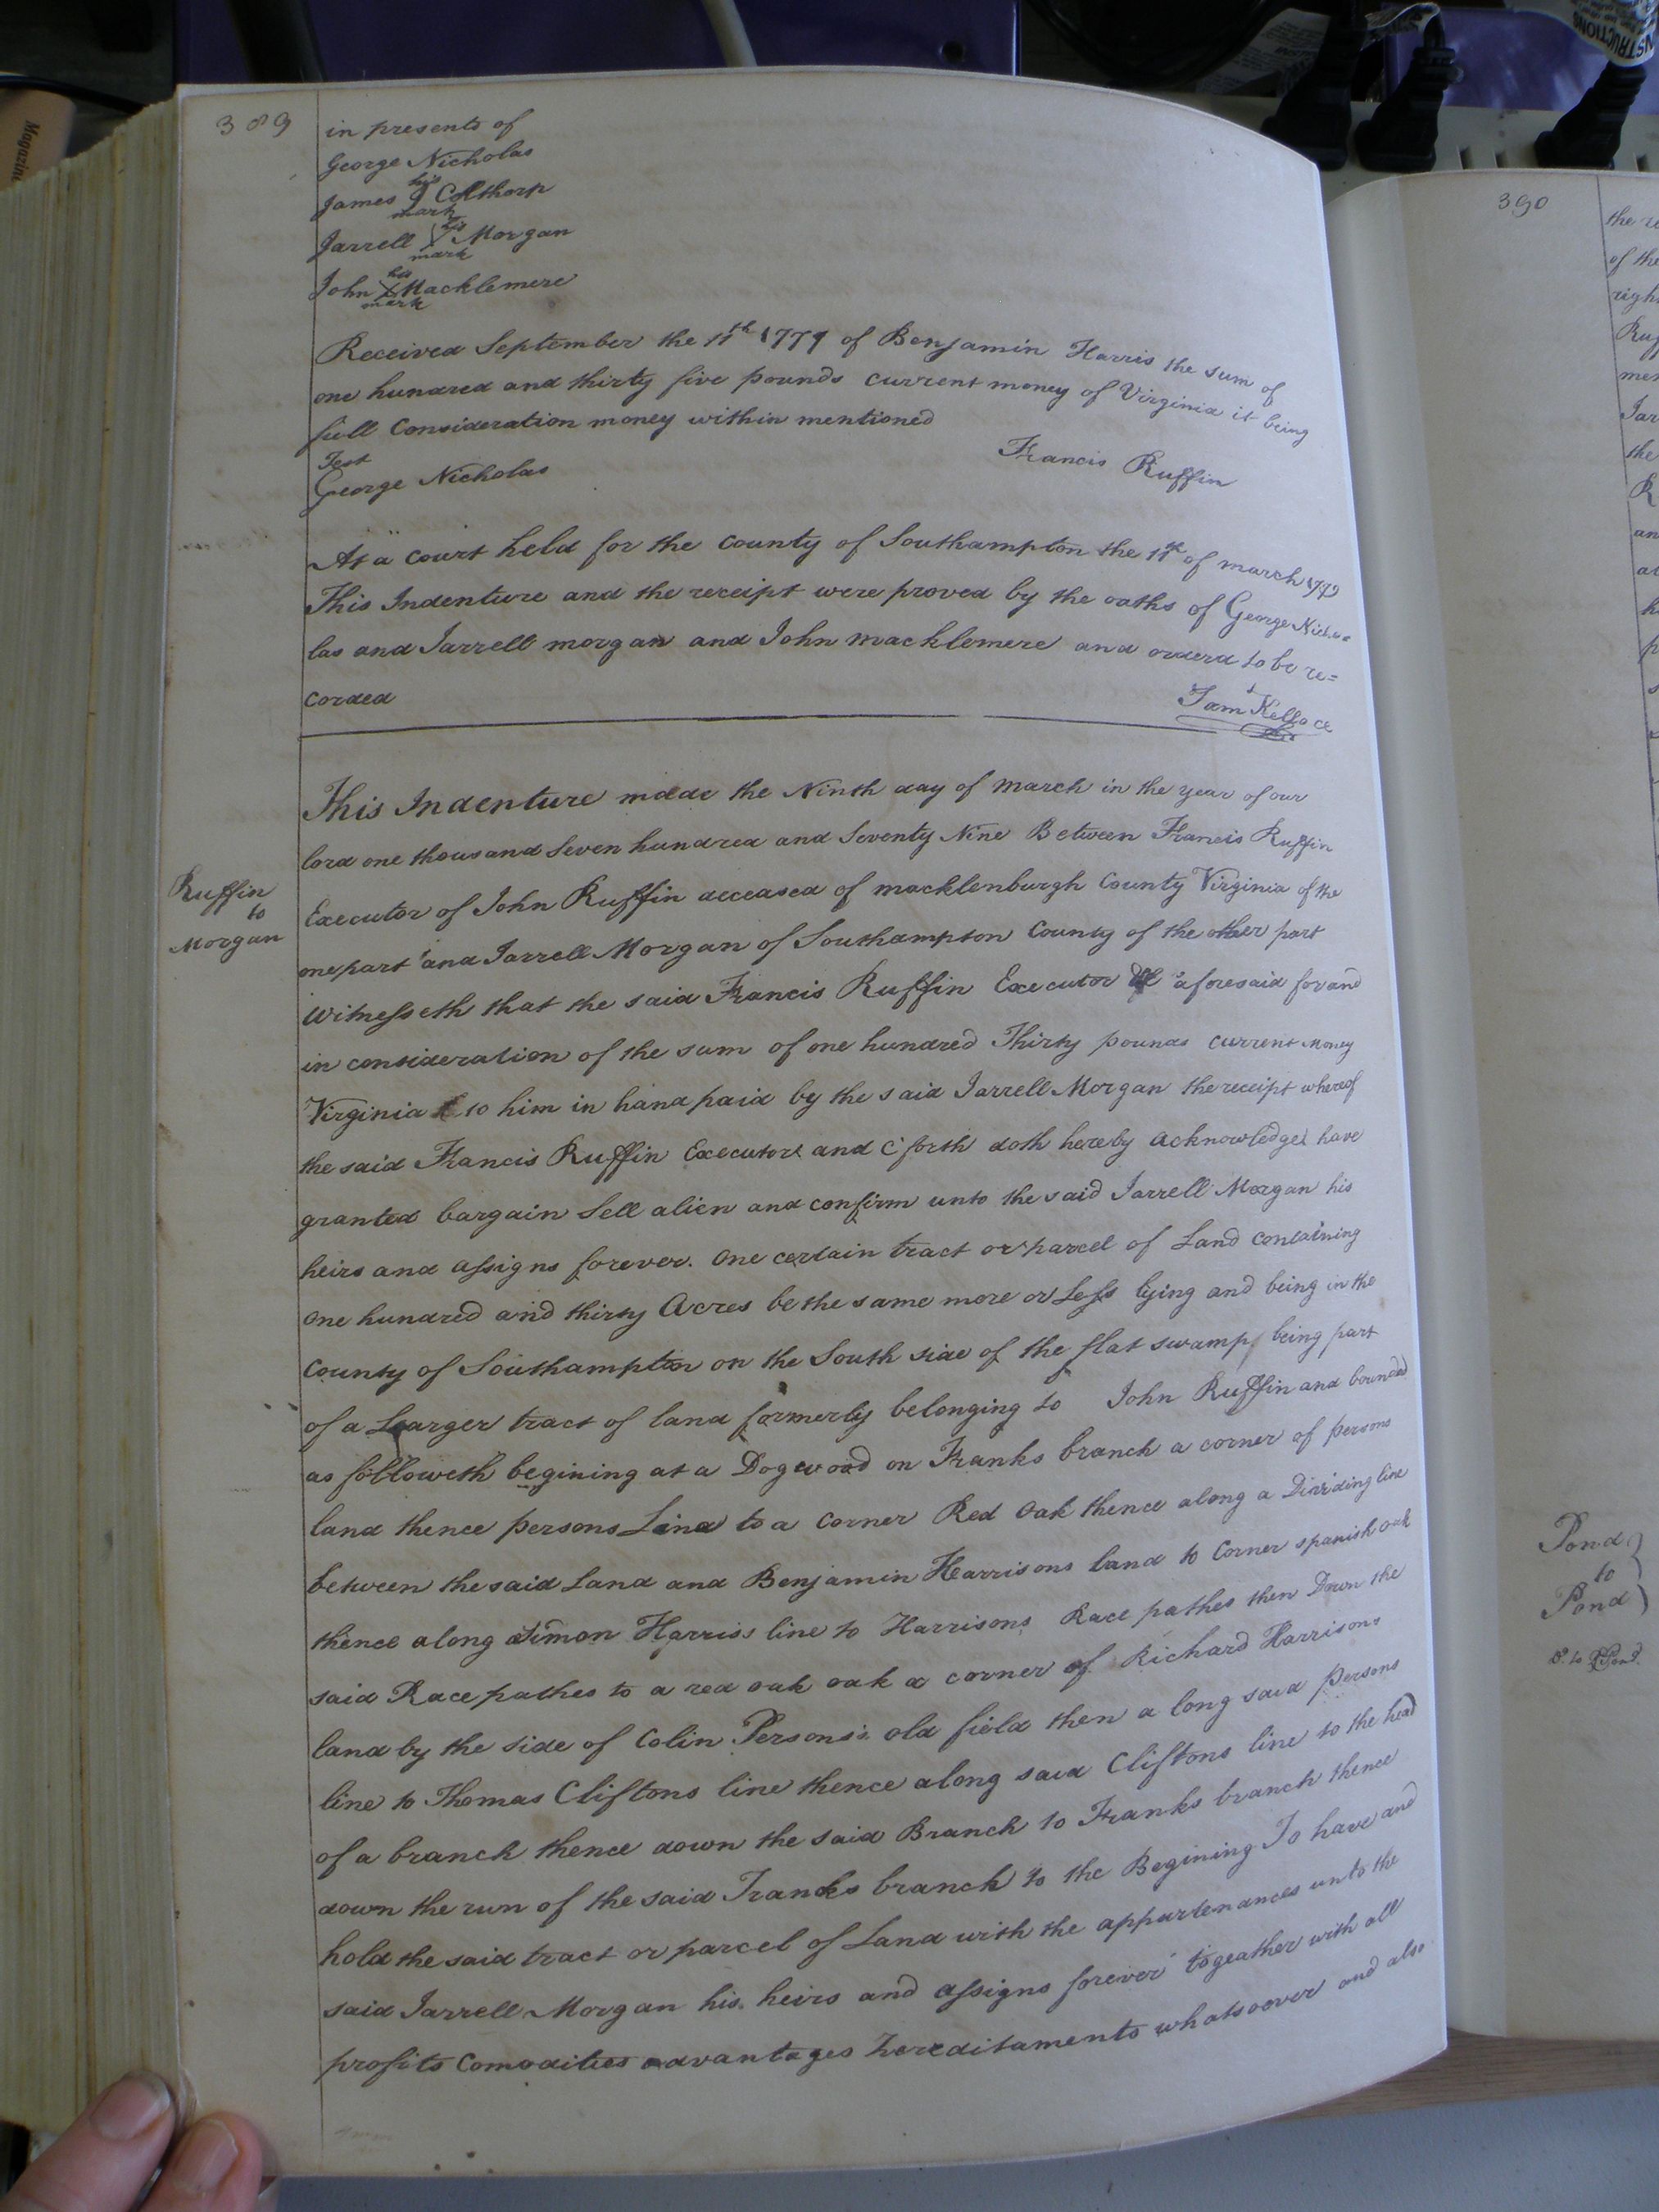 389
in presents of
George Nicholas
his
James Colthorp
mark
his
Jarrell X Morgan
mark
his
John X Macklemere
mark
Received September the 11th 1779 of Benjamin Harris the sum of
one hundred and thirty five pounds current money of Virginia it being
full Consideration money within mentioned
Francis Ruffin
Test
George Nicholas
At a Court held for the County of Southampton the 11th of march 1779
This Indenture and the receipt were proved by the oaths of George Nicho=
las and Jarrell morgan and John macklemere and orderd to be re=
corded
Sam Kello
Ruffin
to
Morgan
This Indenture made the Ninth day of March in the year of our
lord one thousand Seven hundred and Seventy Nine Between Francis Ruffin
Executor of John Ruffin deceased of macklenburgh County Virginia of the
one part and Jarrell Morgan of Southampton County of the other part
Witnesseth that the said Francis Ruffin Executor aforesaid for and
in consideration of the sum of one hundred Thirty pounds current Money
Virginia to him in hand paid by the said Jarrell Morgan the receipt whereof
the said Francis Ruffin Executors and C forth doth hereby acknowledge have
granted bargain Sell alien and confirm unto the said Jarrell Morgan his
heirs and assigns forever. One certain tract or parcel of Land containing
One hundred and thirty Acres be the same more or Less lying and being in the
County of Southampton on the South side of the flat swamp being part
of a Learger tract of land formerly belonging to John Ruffin and bounded
as followeth begining at a Dogwood on Franks branch a corner of persons
land thence persons Line to a Corner Red Oak thence along a Dividing line
between the said Land and Benjamin Hearrisons land to Corner spanish oak
thence along Simon Harriss line to Harrisons Race pathes then Down the
said Race pathes to a red oak oak a corner of Richard Harrisons
land by the side of Colin Persons's old field then a long said persons
line to Thomas Cliftons line thence along said Cliftons line to the head
of a branch thence down the said Branch to Franks branch thence
down the run of the said Franks branch to the Begining To have and
hold the said tract or parcel of Land with the appurtenances unto the
said Jarrell Morgan his heirs and assigns forever togeather with all
profits Comodities advantages hereditaments whatsoever and also
390
the
of the
righ
Ruf
mer
Jar
the
R
an
at
h
p
Pond
to
Pond
Magazine